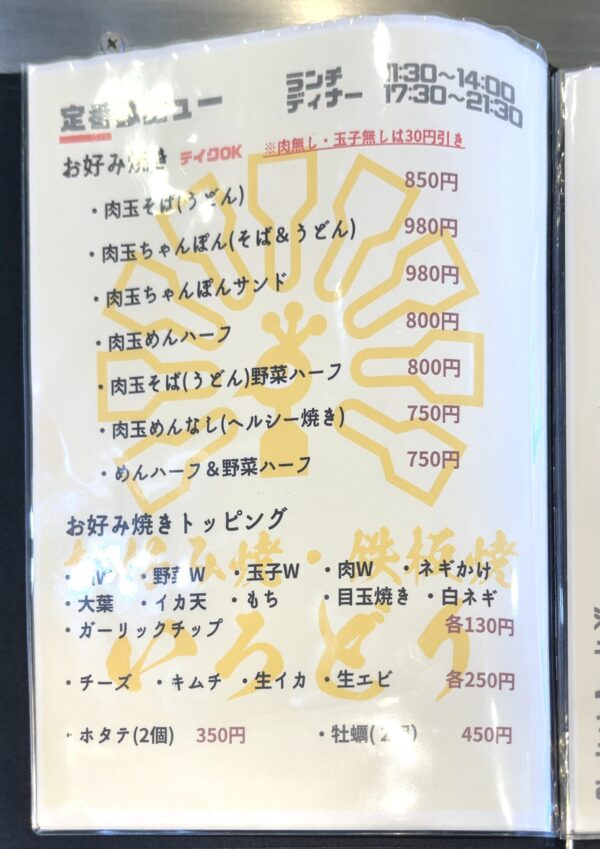 定番メニュー
ランチ 11:30〜14:00
ディナー 17:30〜21:30
お好み焼き テイクOK ※肉無し・玉子無しは30円引き
・肉玉そば(うどん) 850円
・肉玉ちゃんぽん(そば&うどん) 980円
・肉玉ちゃんぽんサンド 980円
・肉玉めんハーフ 800円
・肉玉そば(うどん)野菜ハーフ 800円
・肉玉めんなし(ヘルシー焼き) 750円
・めんハーフ&野菜ハーフ 750円
お好み焼きトッピング
・野菜W ・玉子W ・肉W ・ネギかけ
・大葉 ・イカ天 ・もち ・目玉焼き ・白ネギ
・ガーリックチップ 各130円
・チーズ ・キムチ ・生イカ ・生エビ 各250円
・ホタテ(2個) 350円 ・牡蠣(2個) 450円
お好み焼・鉄板焼
いろどり